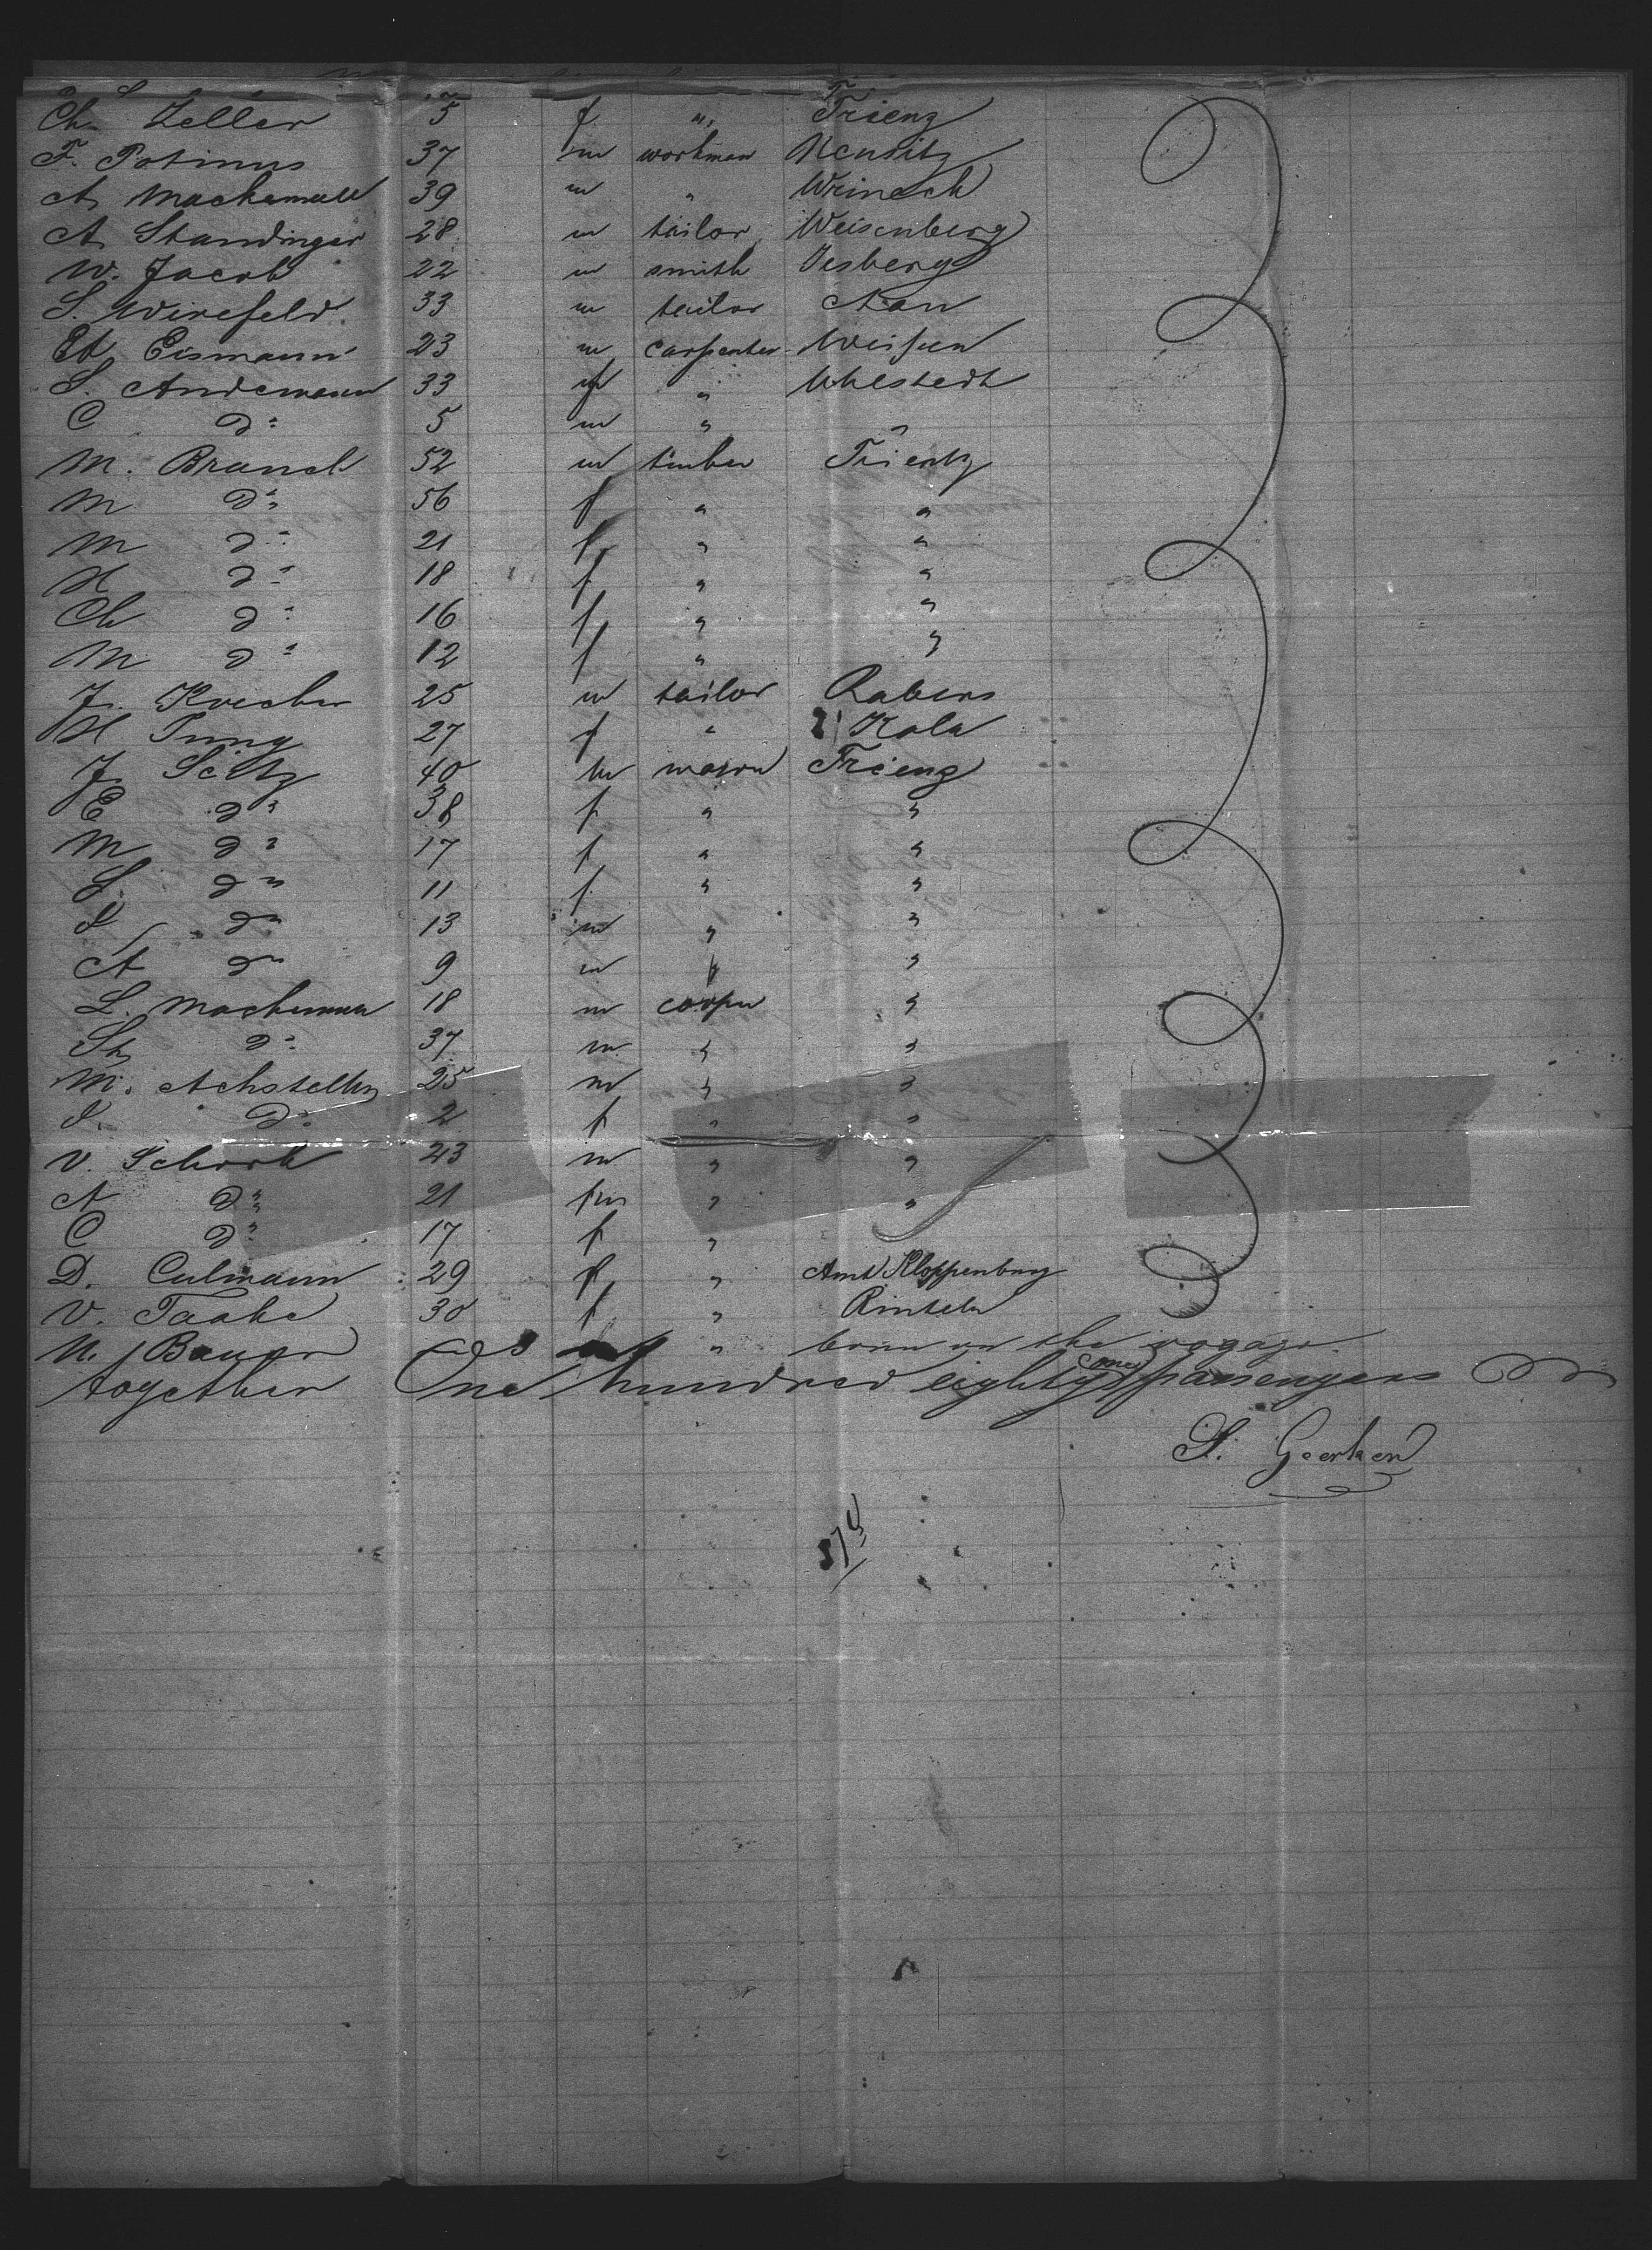 Ch Zeller 5 f " Trienz
F. Potinus 37 m workman
A Mackemull 39 m " Wrinech
A Standinger 28 m tailor Weisenberg
W. Jacob 22 m smith Jesberg
S. Wirefeld 33 m tailor Aan
Ed Eismann 23 m carpenter
S. Andemann 33 f " Uhlstedt
C do 5 m " "
M. Brauch 52 m timber Trientz
M do 56 f " "
M do 21 f " "
H do 18 f " "
Ch do 16 f " "
M do 12 f " "
J. 25 m tailor Rabers
H Jung 27 f " Kola
J. Seitz 40 m mason Trienz
E do 38 f " "
M do 17 f " "
S. do 11 f " "
S do 13 m " "
A do 9 m " "
L. Mackemull 18 m carpen "
St do 37 m " "
M. Achsteller 25 m " "
S. do 2 f " "
V. Schork 23 m " "
A do 21 fm " "
C do 17 f "
D. Culmann 29 f " Amt Kloppenburg
V. Taake 30 f " Rinteln
N. Bauer " born on the voyage.
together One hundred eighty (one) passengers
S. Geerken